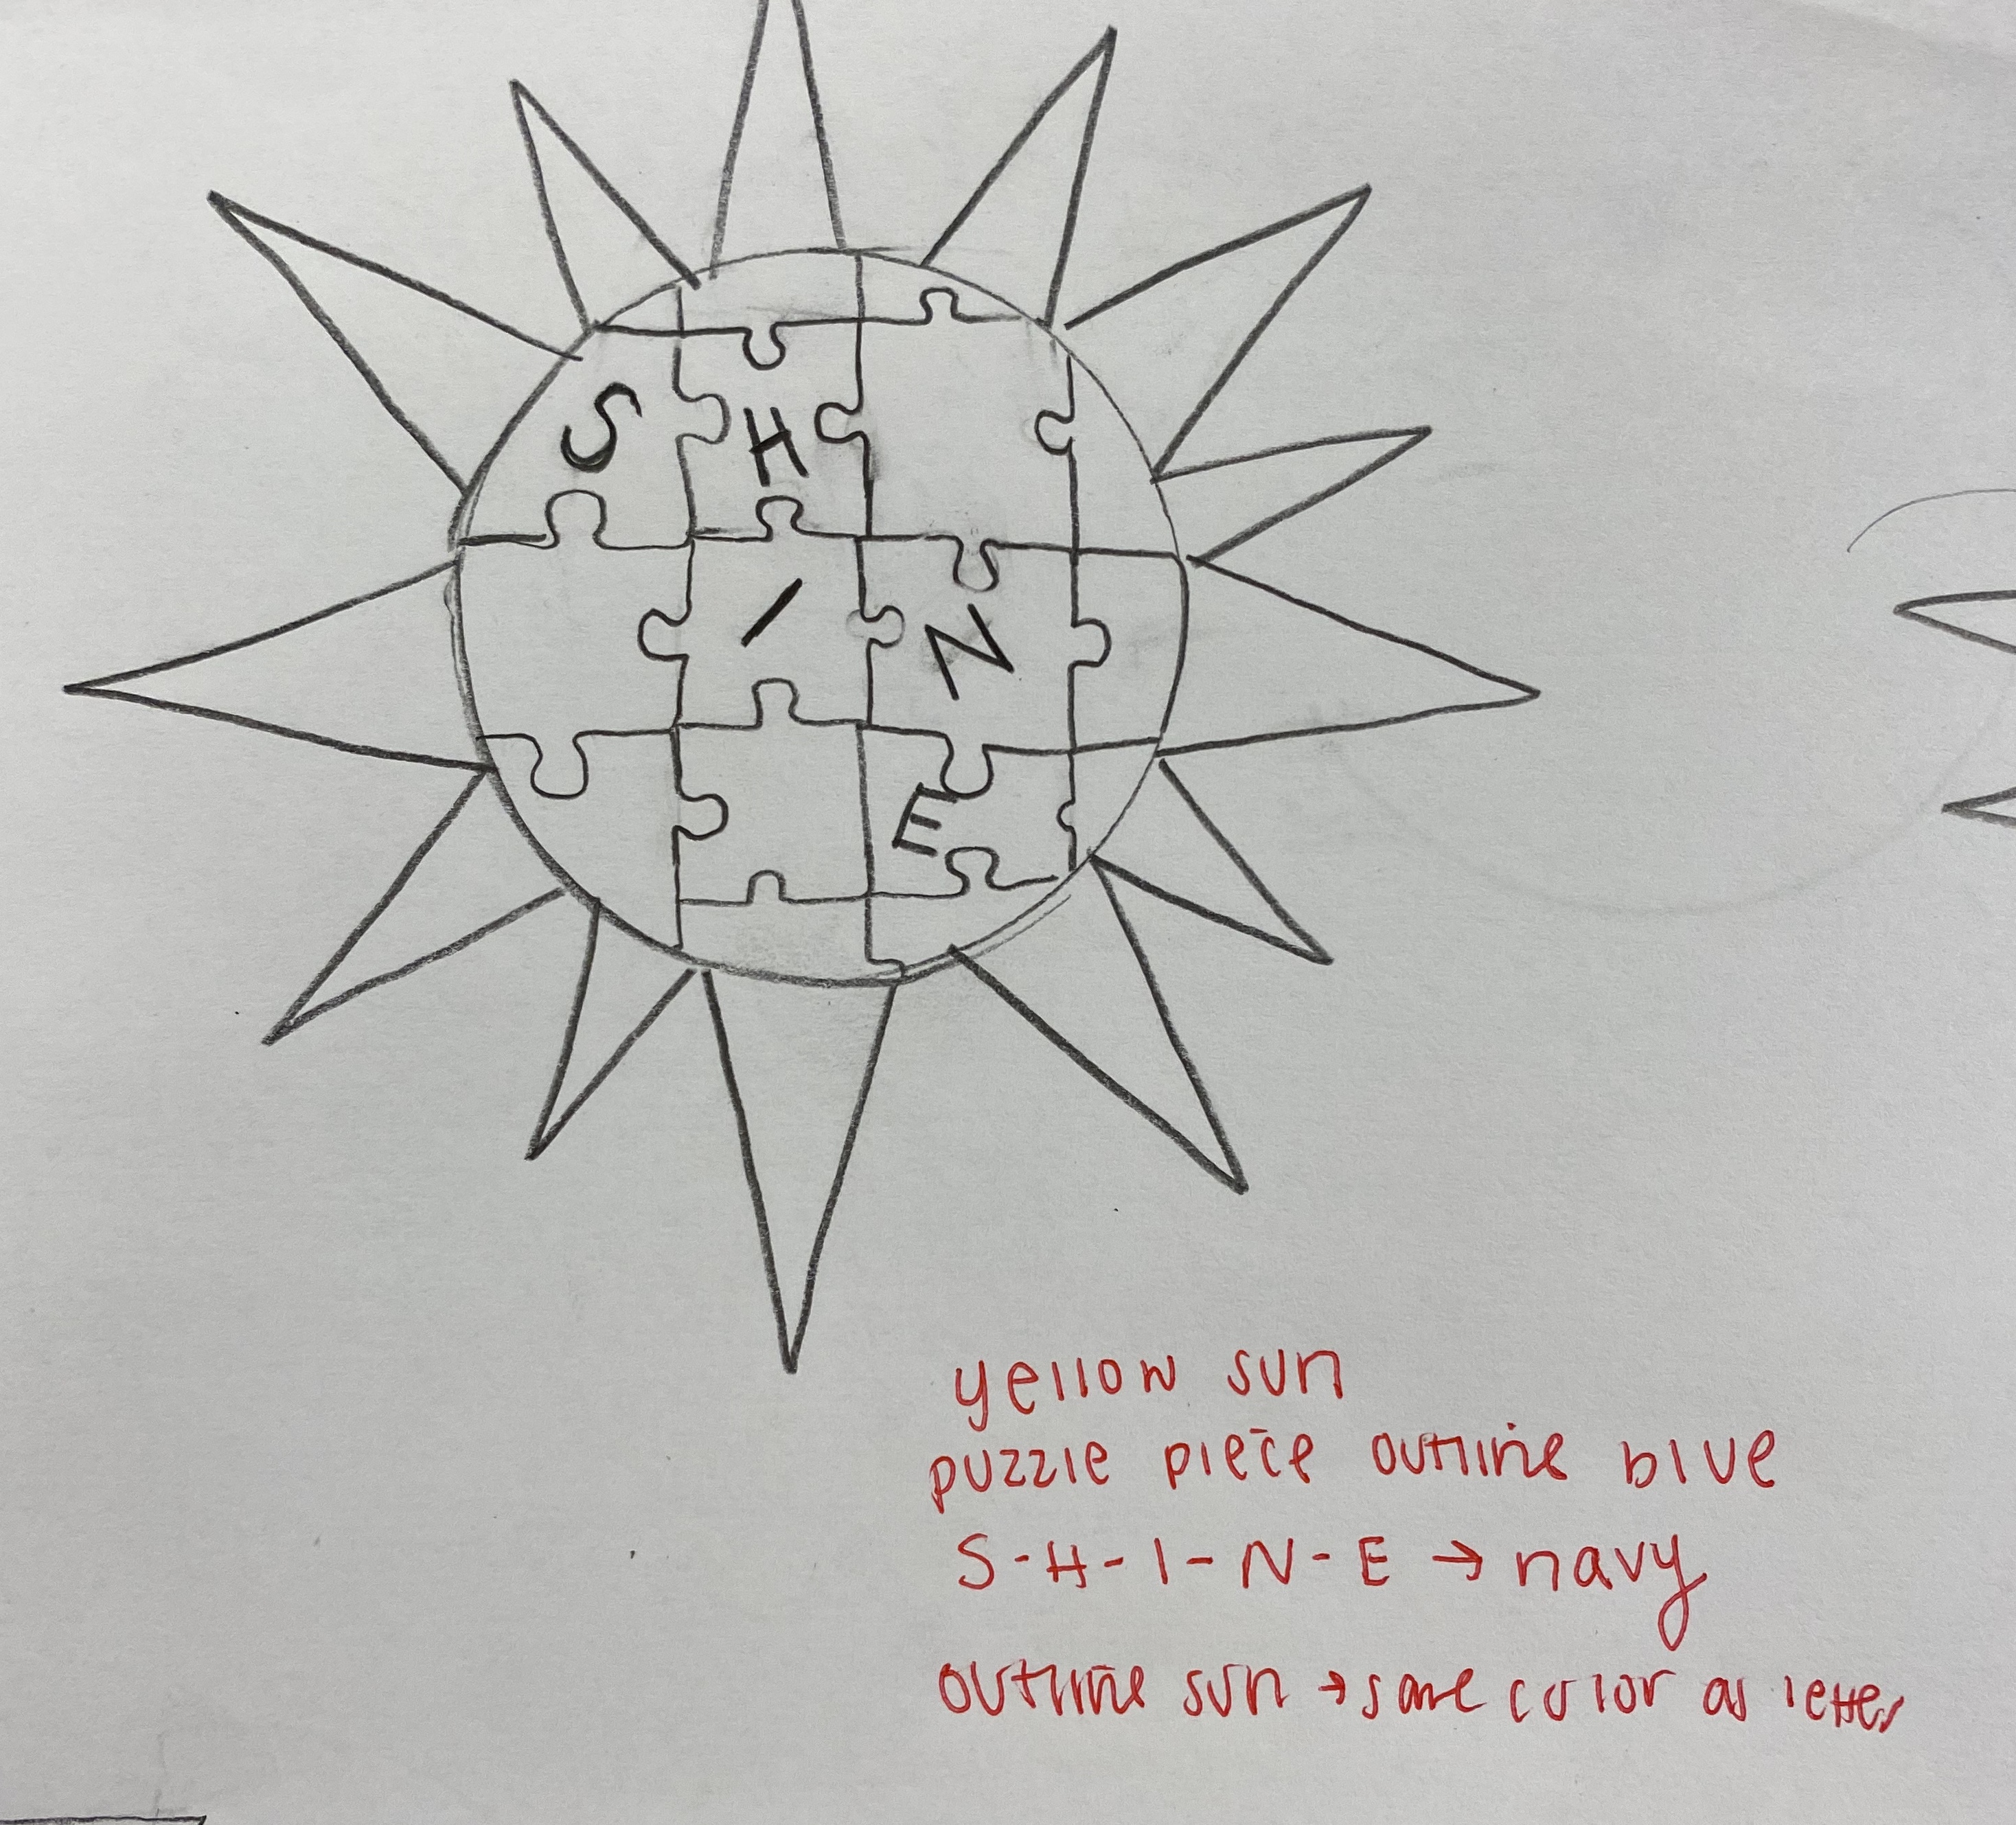 S H
I N
E
yellow sun
puzzle piece outline blue
S-H-I-N-E → navy
outline sun → same color as letter